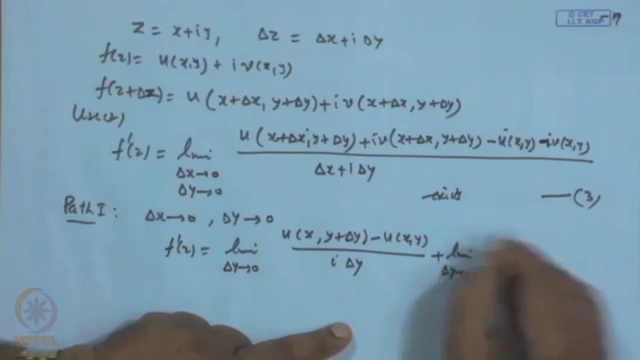 © CET
I.I.T. KGP
Z = x+iy, Δz = Δx+iΔy
f(z) = u(x,y) + i v(x,y)
f(z+Δz) = u(x+Δx, y+Δy) + i v(x+Δx, y+Δy)
Use(2)
f'(z) = lim Δx→0 Δy→0 u(x+Δx, y+Δy) + iv(x+Δx, y+Δy) - u(x,y) - iv(x,y) / Δx+iΔy
exists —(3)
Path I: Δx→0, Δy→0
f'(z) = lim Δy→0 u(x, y+Δy) - u(x,y) / i Δy + lim Δy→
NPTEL